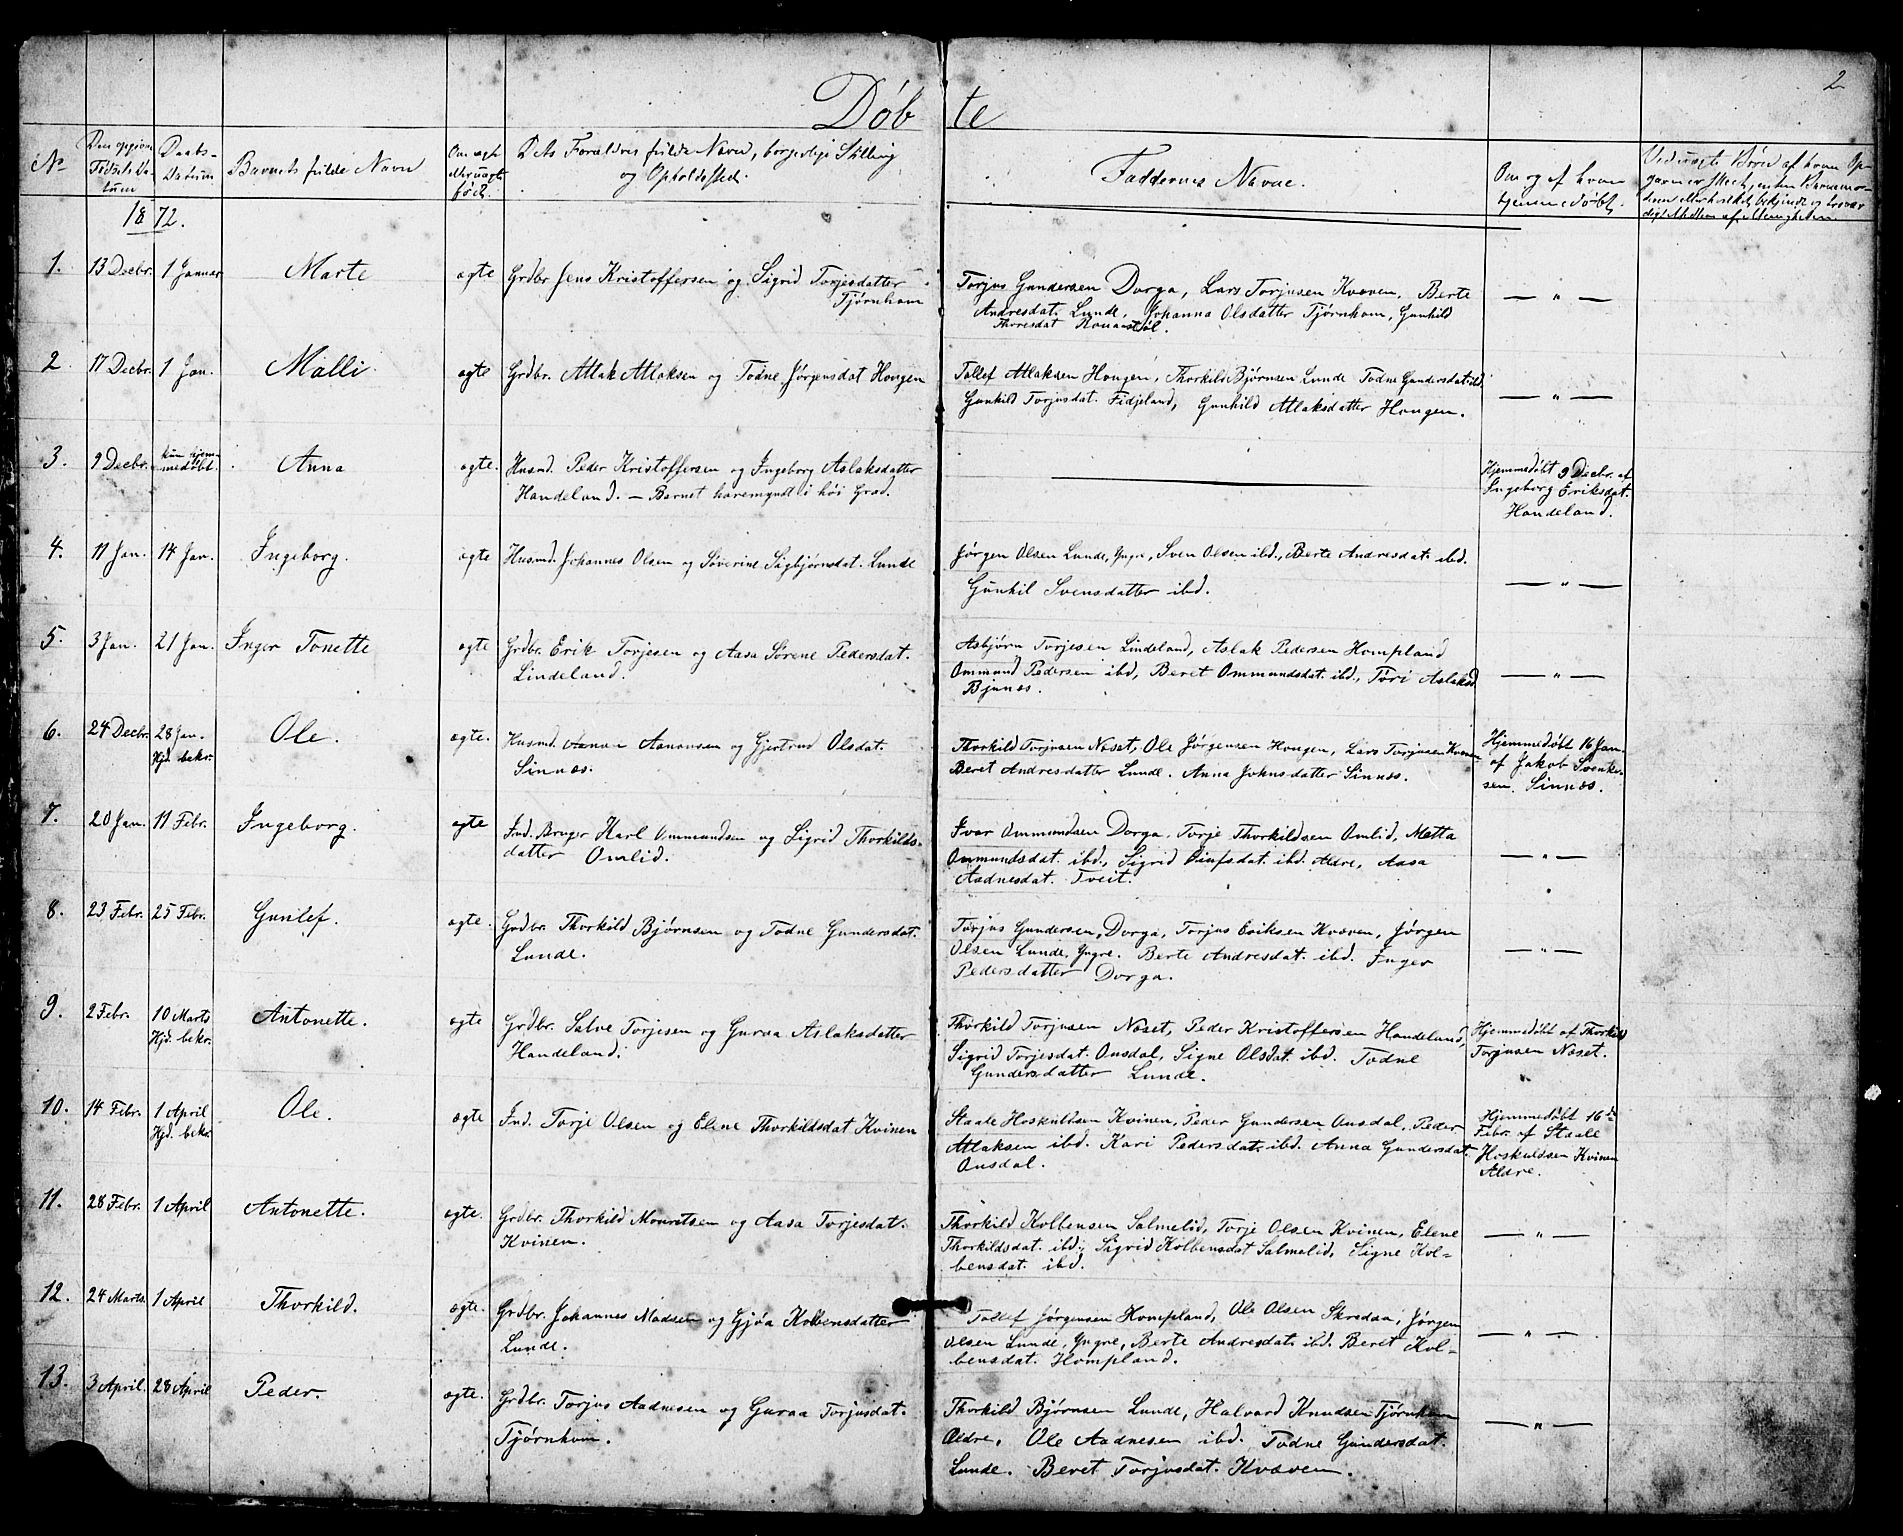 2
Døbte
No
Den opgivne Fødsels Datum
Daabs-Datum
Barnets fulde Navn
Om ægte eller uægte født.
Dets Forældres fulde Navn, borgerlige Stilling
og Opholdssted.
Faddernes Navne.
Om og af hvem hjemmedøbt
Ved uægte Børn af hvem Op-
1872.
1. 13 Decbr. 1 Januar Marte ægte Grdbr. Jens Kristoffersen og Sigrid Torjesdatter
Tjørnhom
Torjus Gundersen Dorga, Lars Torjusen Kvæven, Berte
Andresdat. Lunde, Johanna Olsdatter Tjørnhom, Gunhild
Thoresdat
— " —
2 17 Decbr. 1 Jan. Malli ægte Grdbr. Atlak Atlaksen og Todne Jørgensdat Hougen
Tollef Atlaksen Hougen, Thorkild Bjørnsen Lunde Todne Gundersdat ibd
Gunhild Torjusdat. Fidjeland, Gunhild Atlaksdatter Hougen.
— " —
3. 9 Decbr. kun hjem-
medøbt. Anna ægte. Husmd. Peder Kristoffersen og Ingeborg Aslaksdatter
Handeland. — Barnet haremyndt i høi Grad.
Hjemmedøbt 9 Decbr. af
Ingeborg Eriksdat.
Handeland.
4. 11 Jan. 14 Jan. Ingeborg. ægte Husmd. Johannes Olsen og Søverine Sigbjørnsdat. Lunde
Jørgen Olsen Lunde, Yngre, Sven Olsen ibd., Berte Andresdat. ibd.
Gunhil Svensdatter ibd.
— " —
5. 3 Jan. 21 Jan. Inger Tonette ægte Grdbr. Erik Torjesen og Aasa Sørene Pedersdat.
Lindeland.
Asbjørn Torjesen Lindeland, Aslak Pedersen Hompland
Ommund Pedersen ibd, Beret Ommundsdat. ibd., Tori Aslaksd.
Bjunes.
— " —
6. 24 Decbr. 28 Jan.
Hjd. bekr. Ole. ægte. Husmd. Aanon Aanonsen og Gjertrud Olsdat.
Sinnes.
Thorkild Torjusen Næset, Ole Jørgensen Hougen, Lars Torjusen Kvæven
Beret Andresdatter Lunde. Anna Johnsdatter Sinnes.
Hjemmedøbt 16 Jan.
af Jakob Svenke-
sen Sinnes.
7. 20 Jan. 11 Febr. Ingeborg. ægte Ind. Bruger Karl Ommundsen og Sigrid Thorkilds-
datter Omlid.
Ivar Ommundsen Dorga, Torje Thorkildsen Omlid, Metta
Ommundsdat. ibd, Sigrid ibd. Ældre, Aasa
Aadnesdat. Tveit.
— " —
8. 23 Febr. 25 Febr. Gunlef. ægte. Grdbr. Thorkild Bjørnsen og Todne Gundersdat.
Lunde.
Torjus Gundersen, Dorga, Torjus Eriksen Kvæven, Jørgen
Olsen Lunde, Yngre. Berte Andresdat. ibd. Inger
Pedersdatter Dorga.
— " —
9. 2 Febr. 10 Marts
Hjd. bekr. Antonette. ægte Grdbr. Salve Torjesen og Guraa Aslaksdatter
Handeland.
Thorkild Torjusen Næset, Peder Kristoffersen Handeland,
Sigrid Torjesdat. Ousdal, Signe Olsdat. ibd. Todne
Gundersdatter Lunde.
Hjemmedøbt af Thorkild
Torjusen Næset.
10. 14 Febr. 1 April
Hjd. bekr. Ole. ægte Ind. Torje Olsen og Elene Thorkildsdat Kvinen
Staale Hoskuldsen Kvinen, Peder Gundersen Ousdal, Peder
Atlaksen ibd. Kari Pedersdat. ibd. Anna Gundersdat.
Ousdal.
Hjemmedøbt 16de
Febr. af Staale
Hoskuldsen Kvinen
Ældre.
11. 28 Febr. 1 April Antonette. ægte. Grdbr. Thorkild Mouritsen og Aasa Torjesdat.
Kvinen.
Thorkild Kolbensen Salmelid, Torje Olsen Kvinen, Elene
Thorkildsdat. ibd., Sigrid Kolbensdat Salmelid, Signe Kol-
bensdat. ibd.
— " —
12. 24 Marts. 1 April Thorkild. ægte. Grdbr. Johannes Madsen og Gjøa Kolbensdatter
Lunde.
Tollef Jørgensen Hompland, Ole Olsen Skredaa, Jørgen
Olsen Lunde, Yngre, Berte Andresdat. ibd. Beret Kol-
bensdat. Hompland.
— " —
13. 3 April. 28 April Peder. ægte. Grdbr. Torjus Aadnesen og Guraa Torjusdat.
Tjørnhom.
Thorkild Bjørnsen Lunde, Halvard Knudsen Tjørnhom
Ældre. Ole Aadnesen ibd. Todne Gundersdat.
Lunde. Beret Torjusdat. Kvæven.
— " —